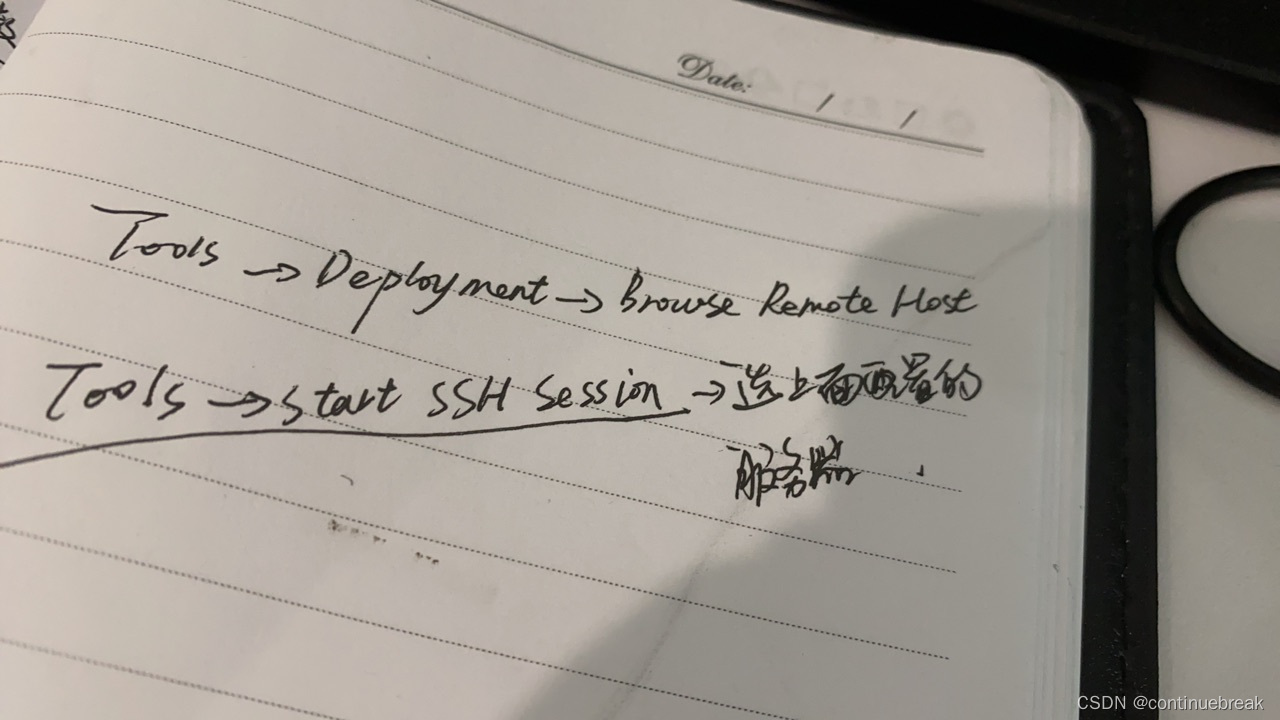 Date: / /
Tools → Deployment → Browse Remote Host
Tools → Start SSH Session → 选上面配置的
服务器.
CSDN @continuebreak